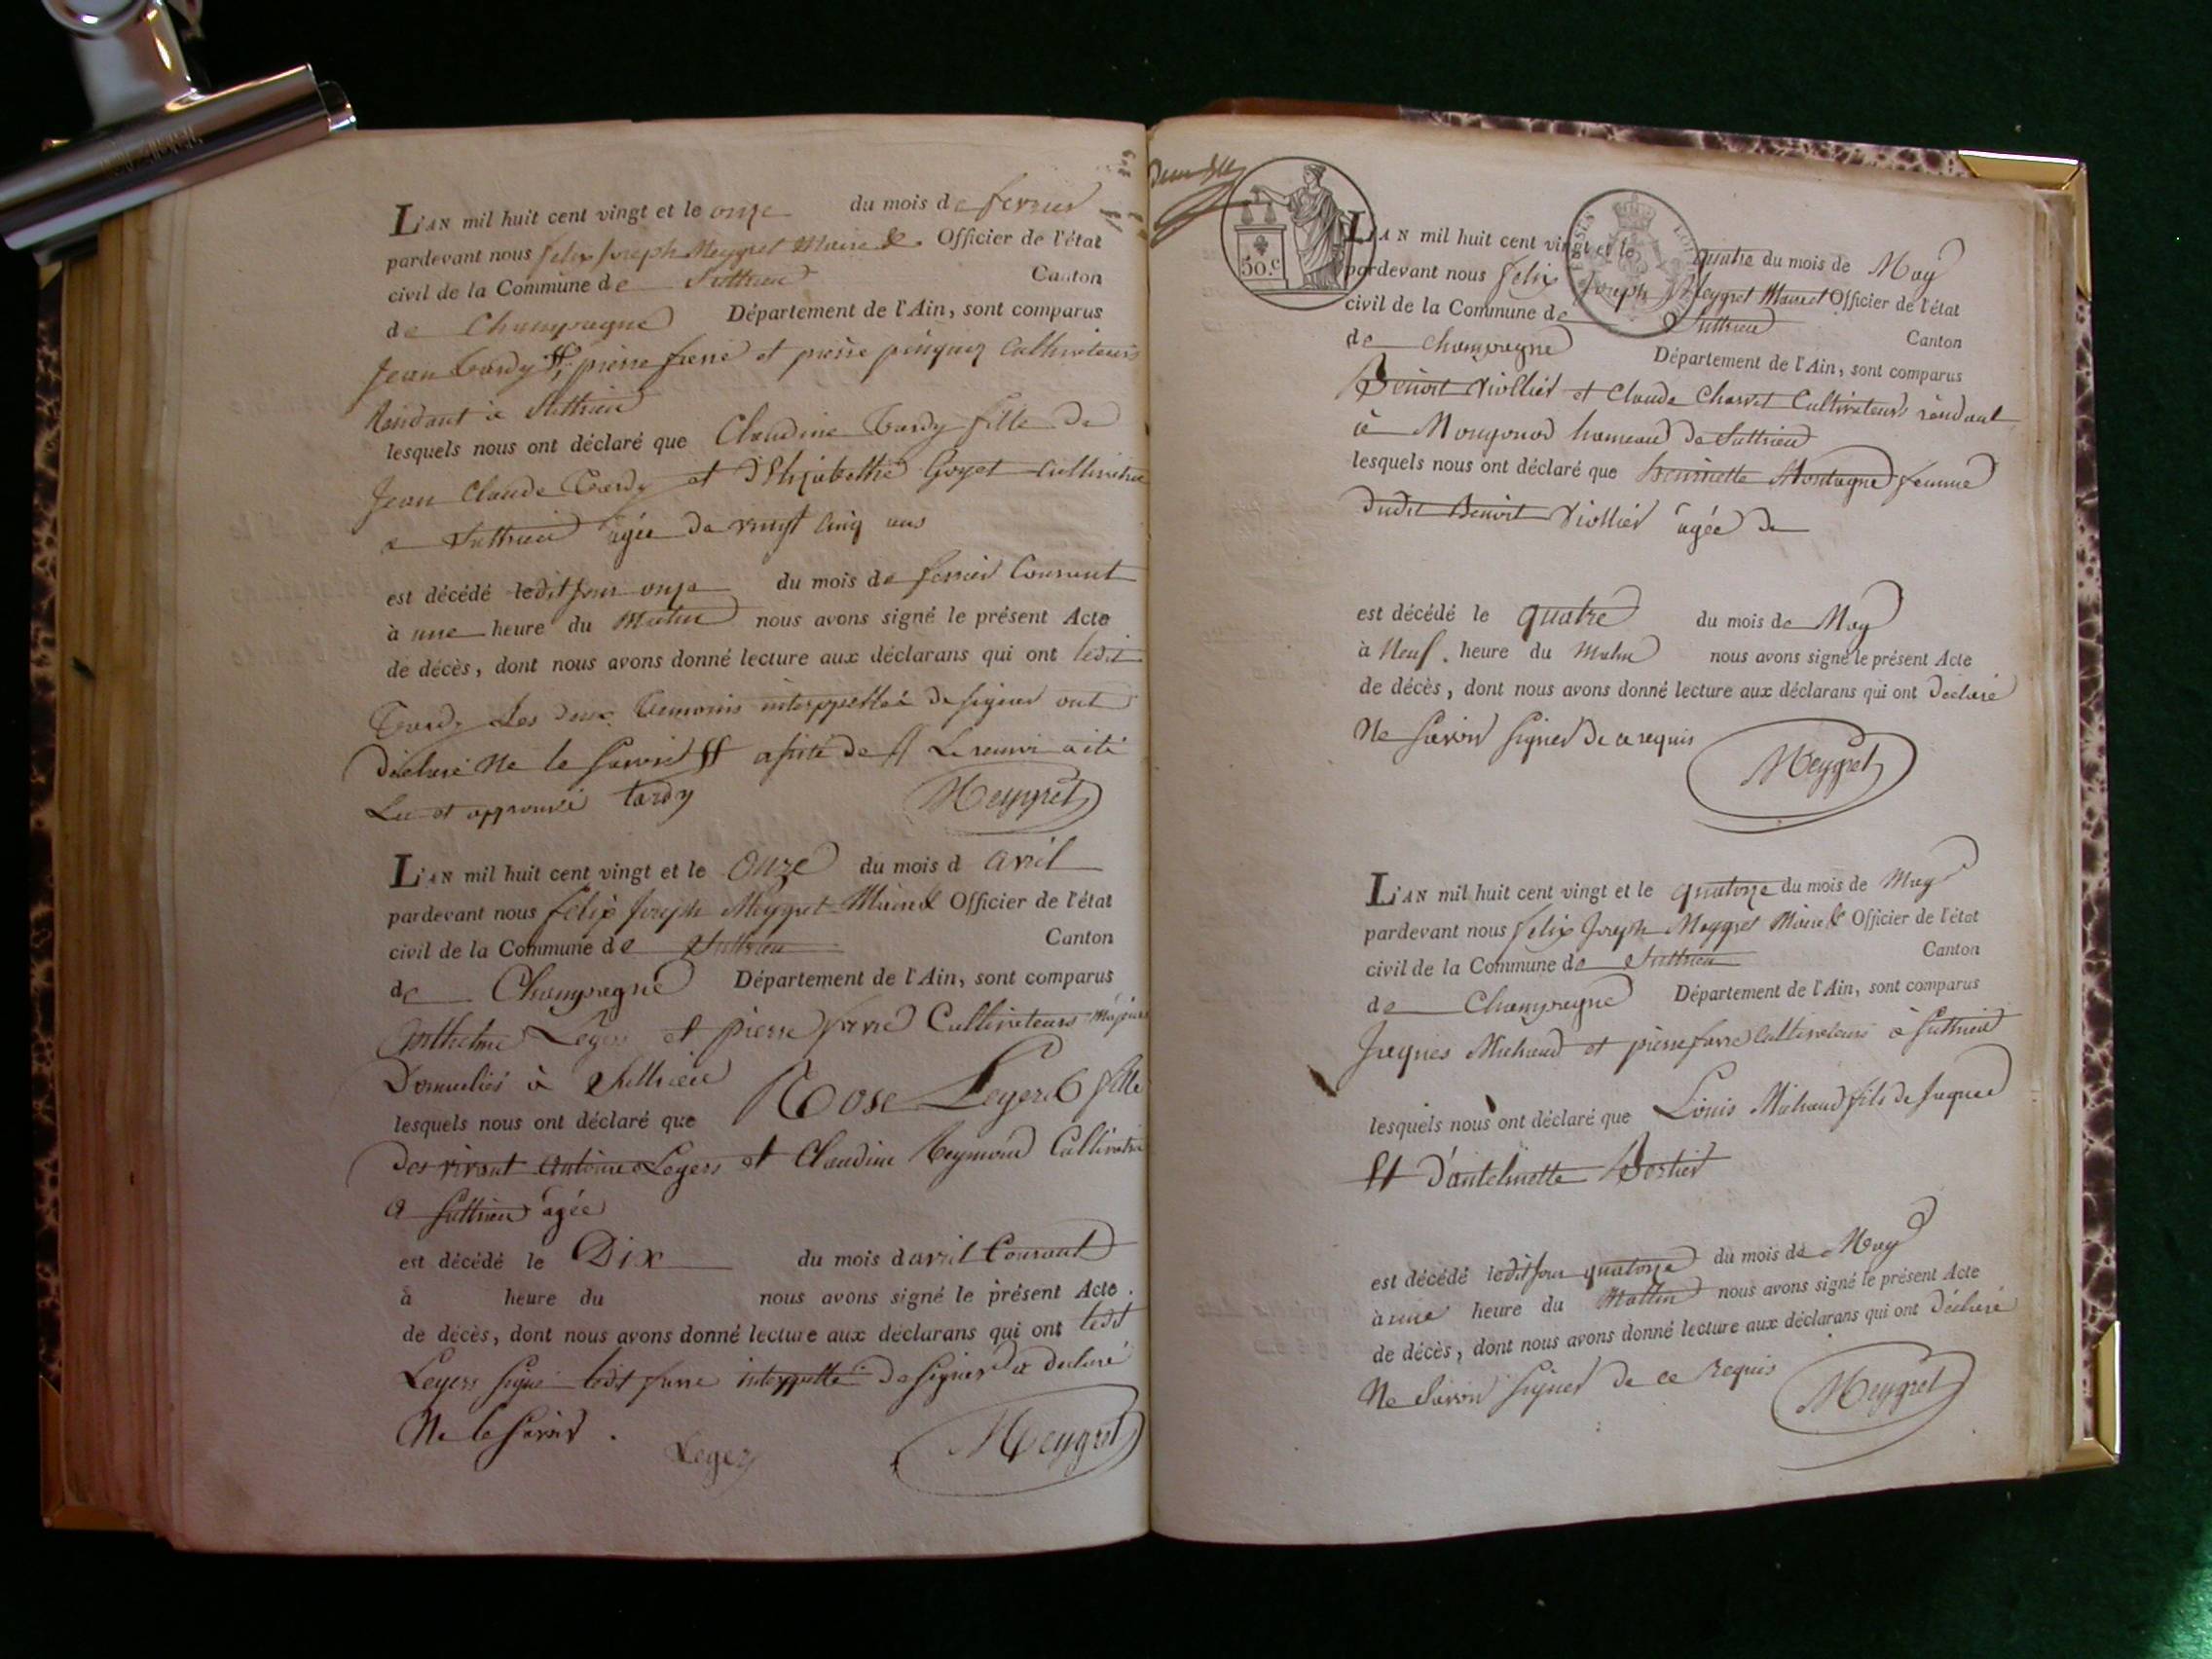 L'AN mil huit cent vingt et le onze du mois de fevrier
pardevant nous felix joseph Meygret Maire & Officier de l'état
civil de la Commune de Suthrieu Canton
de Champagne Département de l'Ain, sont comparus
Jean tardy pierre favre et pierre Cultivateurs
Résidant à Suthrieu
lesquels nous ont déclaré que Claudine tardy fille de
Jean Claude tardy et d'Elizabethe Goyet Cultivateur
a Suthrieu agée de vingt cinq ans
est décédé ledit jour onze du mois de fevrier Courant
à une heure du Matin nous avons signé le présent Acte
de décès, dont nous avons donné lecture aux déclarans qui ont ledit
Tardy Les deux temoins interppellés de signer ont
déclaré Ne le Savoir Le renvoi a été
Lu et approuvé tardy Meygret
L'AN mil huit cent vingt et le Onze du mois d avril
pardevant nous felix joseph Meygret Maire & Officier de l'état
civil de la Commune de Suthrieu Canton
de Champagne Département de l'Ain, sont comparus
Anthelme Legers et pierre favre Cultivateurs Majeurs
Domiciliés à Suthrieu
lesquels nous ont déclaré que Rose Legers fille
des vivant antoine Legers et Claudine Reymond Cultivateur
a Suthrieu agée
est décédé le Dix du mois d avril Courant
à heure du nous avons signé le présent Acte.
de décès, dont nous avons donné lecture aux déclarans qui ont ledit
Legers signé ledit favre interppellé de signer a declaré
Ne le Savoir.
Leger Meygret
50.c
L'AN mil huit cent vingt et le quatre du mois de May
pardevant nous felix Joseph Meygret Maire & Officier de l'état
civil de la Commune de Suthrieu Canton
de Champagne Département de l'Ain, sont comparus
Benoit Viollier et Claude Charvet Cultivateurs résidant
à Mongonod hameau de Suthrieu
lesquels nous ont déclaré que henriette Montagne femme
dudit Benoit Viollier agée de
est décédé le quatre du mois de May
à Neuf. heure du Matin nous avons signé le présent Acte
de décès, dont nous avons donné lecture aux déclarans qui ont declaré
Ne Savoir Signer De ce requis
Meygret
L'AN mil huit cent vingt et le quatorze du mois de May
pardevant nous felix Joseph Meygret Maire & Officier de l'état
civil de la Commune de Suthrieu Canton
de Champagne Département de l'Ain, sont comparus
Jaques Michaud et pierre favre Cultivateurs à Suthrieu
lesquels nous ont déclaré que Louis Michaud fils de Jaques
Et d'antelmette Bortier
est décédé ledit jour quatorze du mois de May
à une heure du Mattin nous avons signé le présent Acte
de décès, dont nous avons donné lecture aux déclarans qui ont déclaré
Ne Savoir signer de ce requis Meygret